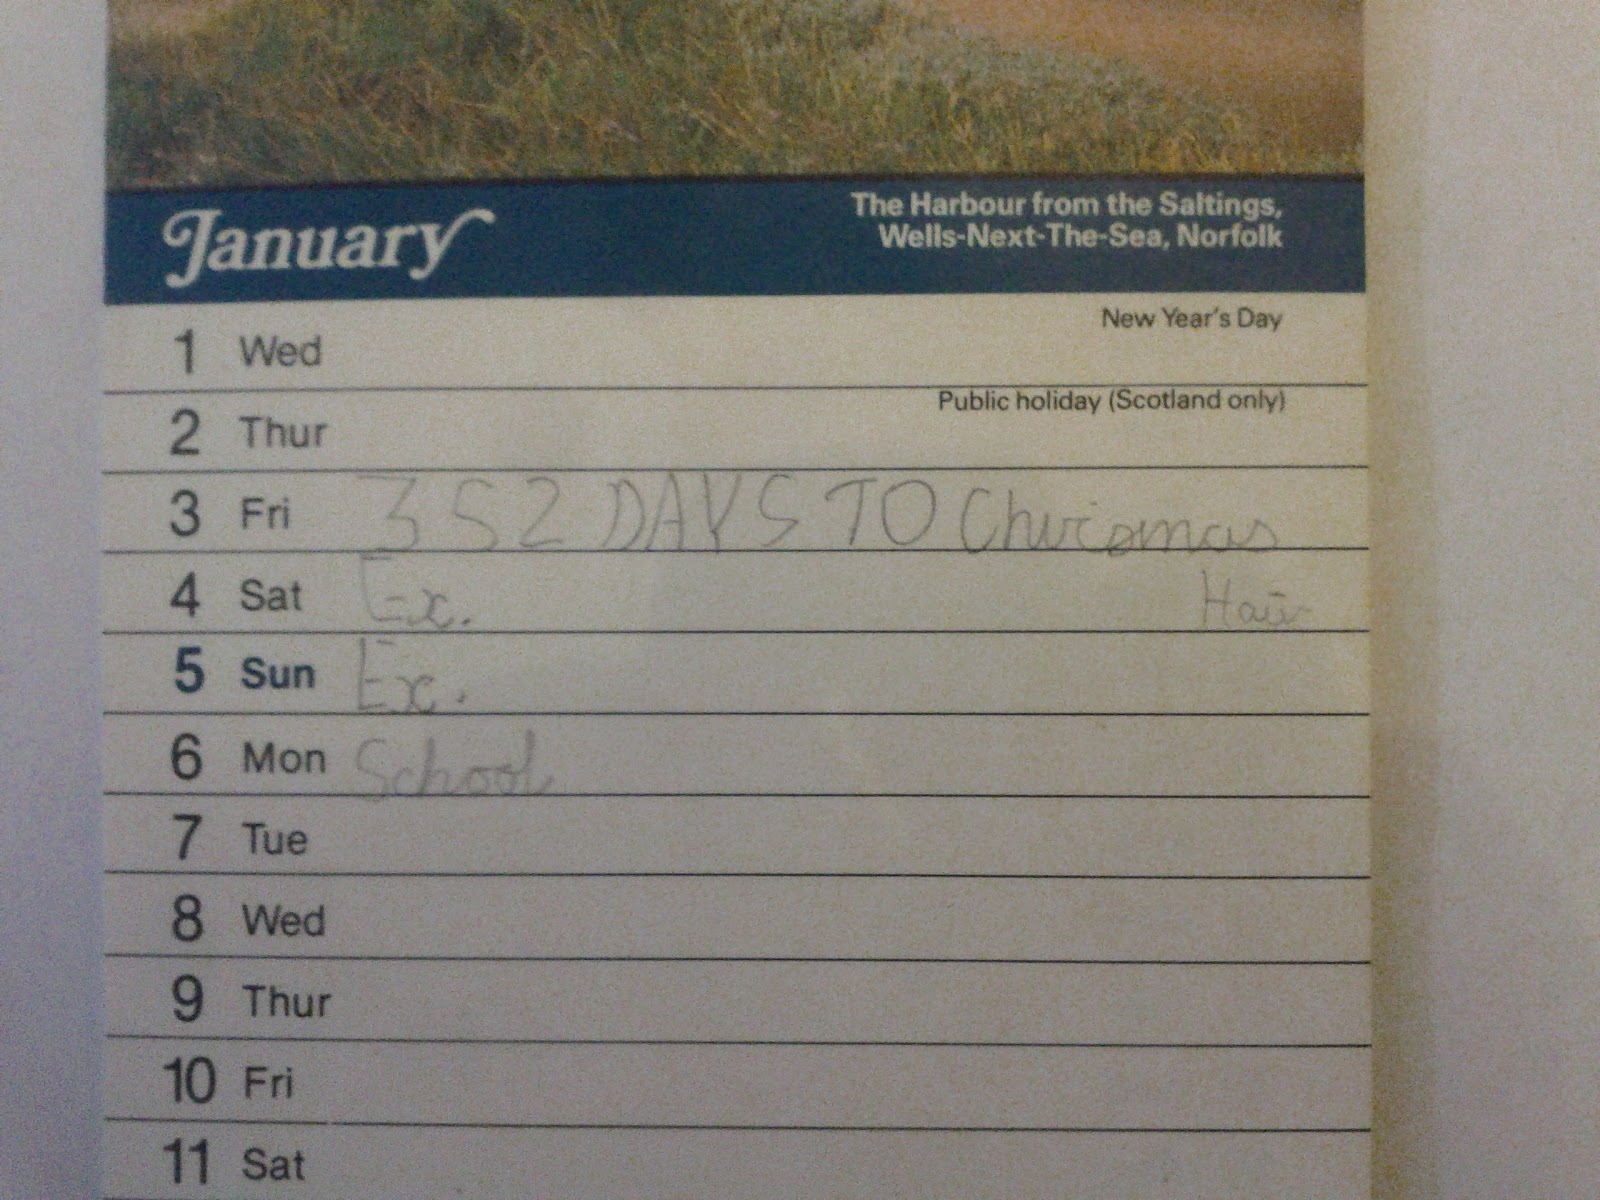 January
The Harbour from the Saltings,
Wells-Next-The-Sea, Norfolk
New Year's Day
1 Wed
Public holiday (Scotland only)
2 Thur
3 Fri 352 DAYS TO Chrismas
4 Sat Ex. Hair
5 Sun Ex.
6 Mon School
7 Tue
8 Wed
9 Thur
10 Fri
11 Sat